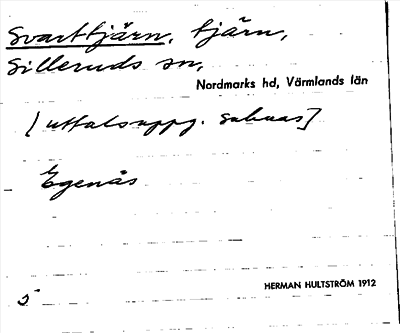 Svarttjärn, tjärn,
Silleruds sn,
Nordmarks hd, Värmlands län
[uttalsuppg. saknas]
Egenäs
HERMAN HULTSTRÖM 1912
5